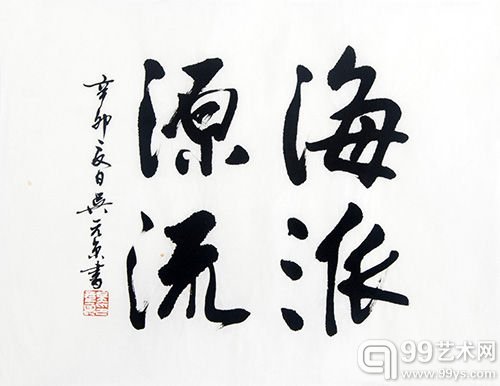 海派
源流
辛卯夏日吴元京书
99艺术网
www.99ys.com